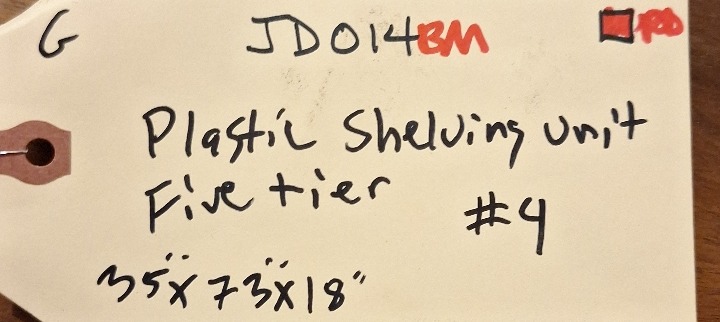 G JD014BM RD
Plastic Shelving unit
Five tier #4
35"x73"x18"